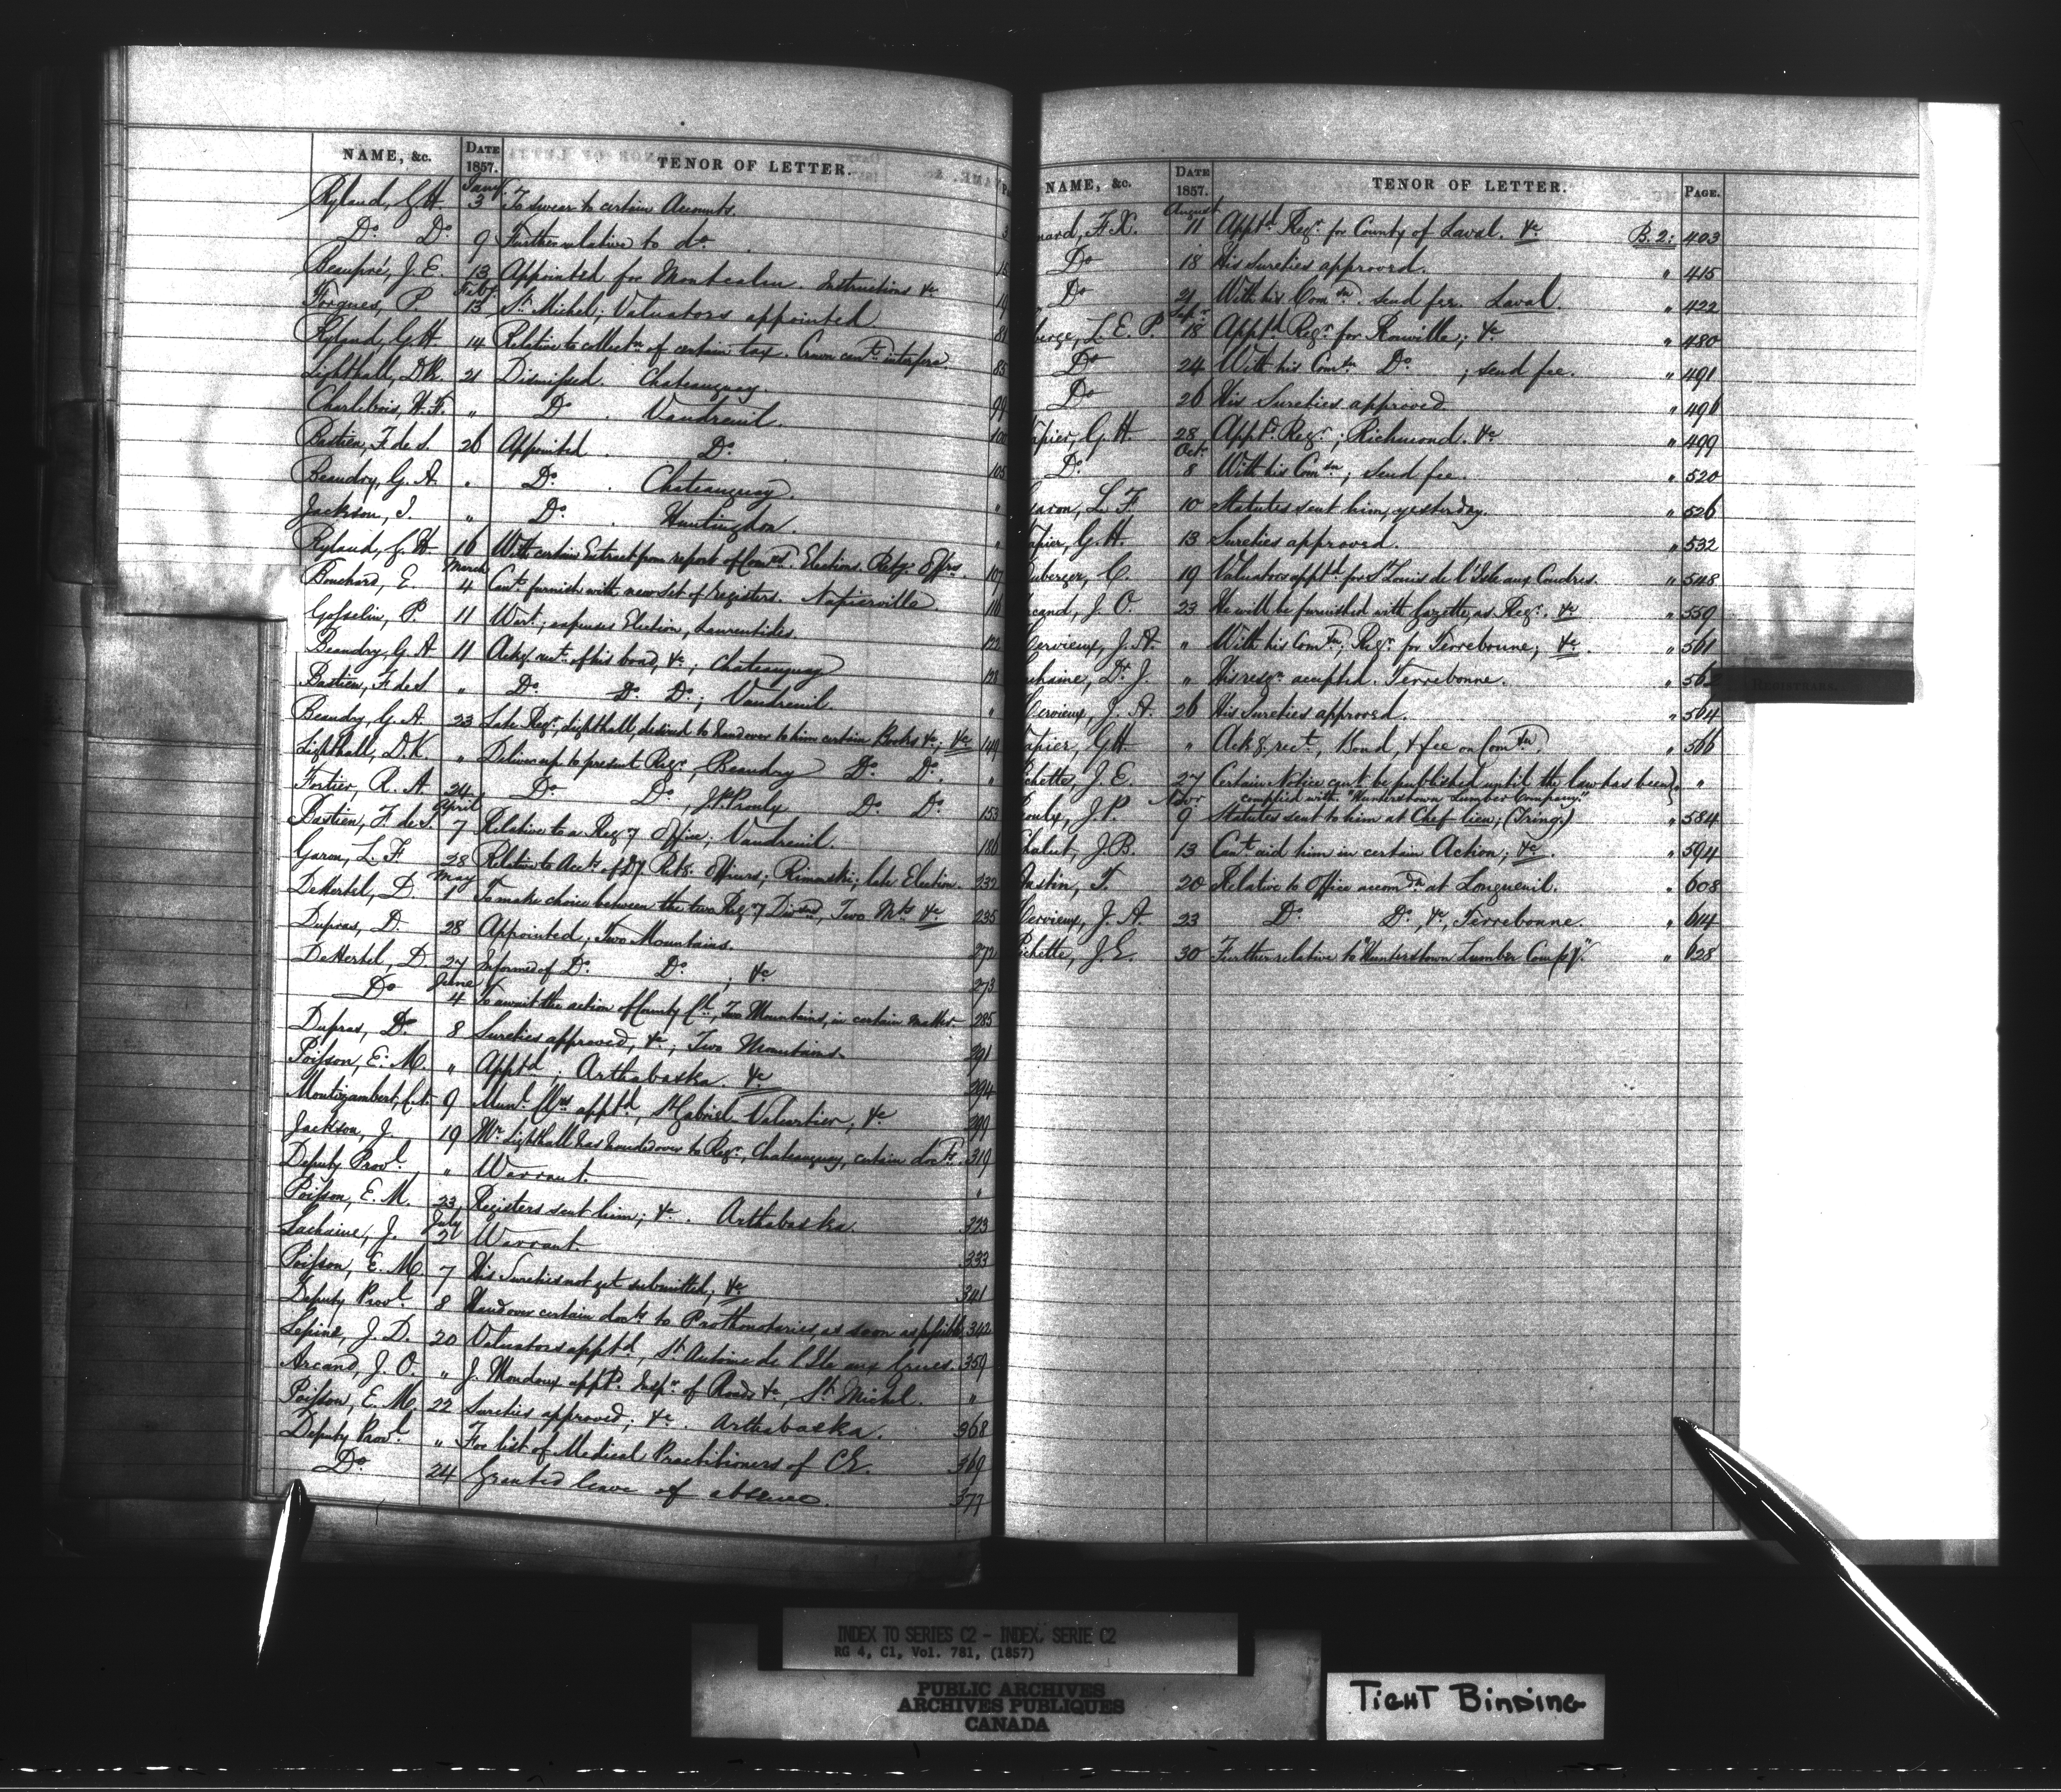 NAME, &c. DATE 1857. TENOR OF LETTER.
Ryland, G. H. Jany. 3 To swear to certain Accounts.
Do. Do. 9 Further relative to do. 15
Beaupré, J. E. 13 Appointed for Montcalm. Instructions &c
Forgues, P. Feby 13 St. Michel; Valuators appointed. 81
Ryland, G. H. 14 Relative to collectn of certain tax. Crown cant. interfere. 85
Lighthall, D. K. 21 Dismissed. Chateauguay. 94
Charlebois, H. F. " Do. Vaudreuil. 100
Bastien, F. de S. 26 Appointed. Do. 105
Beaudry, G. A. " Do. Chateauguay. "
Jackson, J. " Do. Huntingdon. "
Ryland, G. H. 16 With certain Extract from report of Comrs. Elections. Retg. Offrs. 107
Bouchard, E. March 4 Cant. furnish with new set of registers. Napierville. 116
Gosselin, P. 11 Wart.; expenses Election, Laurentides. 122
Beaudry, G. A. 11 Ackg. rect. of his bond, &c; Chateauguay 128
Bastien, F. de S. " Do. Do. Do.; Vaudreuil "
Beaudry, G. A. 23 Late Regr., Lighthall, desired to hand over to him certain Books &c; &c 149
Lighthall, D. K. " Deliver up to present Regr., Beaudry Do. Do. "
Fortier, R. A. 24 Do. Do., J. P. Proulx Do. Do. 153
Bastien, F. de S. April 7 Relative to a Regy Office; Vaudreuil. 186
Garon, L. F. 28 Relative to Accts. of Dy Retg. Officers; Rimouski; late Election. 232
DeHertel, D. May 1 To make choice between the two Regy Divons, Two Mts &c 235
Dupras, D. 28 Appointed; Two Mountains. 272
DeHertel, D. 27 Informed of Do. Do.; &c 273
Do June 4 To await the action of County Cl., Two Mountains, in certain matter. 285
Dupras, D. 8 Sureties approved, &c; Two Mountains. 291
Poisson, E. M. " Apptd; Arthabaska &c 294
Montizambert, C. N. 9 Munl. Clrs apptd, St Gabriel Valcartier, &c 299
Jackson, J. 19 Mr Lighthall has handed over to Regr., Chateauguay, certain docts. 319
Deputy Provl. " Warrant. "
Poisson, E. M. 23 Registers sent him; &c. Arthabaska. 323
Lachaine, J. July 2 Warrant. 333
Poisson, E. M. 7 His Sureties not yet submitted; &c 341
Deputy Provl. 8 Hand over certain docts to Prothonotaries, as soon as possible. 342
Lepine, J. D. 20 Valuators apptd, St Antoine de l'Isle aux Grues. 359
Arcand, J. O. " J. Mondoux apptd. Inspr of Roads &c, St. Michel. "
Poisson, E. M. 22 Sureties approved; &c. Arthabaska. 368
Deputy Provl. " For list of Medical Practitioners of C.E. 369
Do. 24 Granted leave of absence. 377
NAME, &c. DATE 1857. TENOR OF LETTER. PAGE.
nard, F. X. August 11 Apptd Regr. for County of Laval. &c B. 2: 403
Do 18 His Sureties approved. " 415
Do 21 With his Comsn. send fee. Laval. " 422
berge, L. E. P. Sepr. 18 Apptd. Regr. for Rouville; &c " 480
Do 24 With his Comsn Do.; send fee. " 491
Do 26 His Sureties approved. " 496
apier, G. H. 28 Apptd. Regr.; Richmond. &c " 499
Do. Oct. 8 With his Comsn; send fee. " 520
Garon, L. F. 10 Statutes sent him, yesterday. " 526
apier, G. H. 13 Sureties approved. " 532
uberger, C. 19 Valuators apptd. for St Louis de l'Isle aux Coudres. " 548
rcand, J. O. 23 He will be furnished with Gazette, as Regr. &c " 559
Hervieux, J. A. " With his Comsn; Regr. for Terrebonne; &c. " 561
chaine, Dr. J. " His resgn accepted. Terrebonne. " 562
Hervieux, J. A. 26 His Sureties approved. " 564
apier, G. H. " Ackg. rect., Bond, & fee on Comsn. " 566
ichette, J. E. 27 Certain Notice can't be published until the law has been
complied with. "Hunterstown Lumber Company." "
roulx, J. P. Novr 9 Statutes sent to him at Chef lieu; (Tring.) " 584
halut, J. B. 13 Cant. aid him in certain Action; &c. " 594
ustin, T. 20 Relative to Office accomdn at Longueuil. " 608
Hervieux, J. A. 23 Do. Do., &c, Terrebonne. " 614
ichette, J. E. 30 Further relative to "Hunterstown Lumber Compy." " 628
REGISTRARS.
INDEX TO SERIES C2 - INDEX, SERIE C2
RG 4, C1, Vol. 781, (1857)
PUBLIC ARCHIVES
ARCHIVES PUBLIQUES
CANADA
TIGHT BINDING